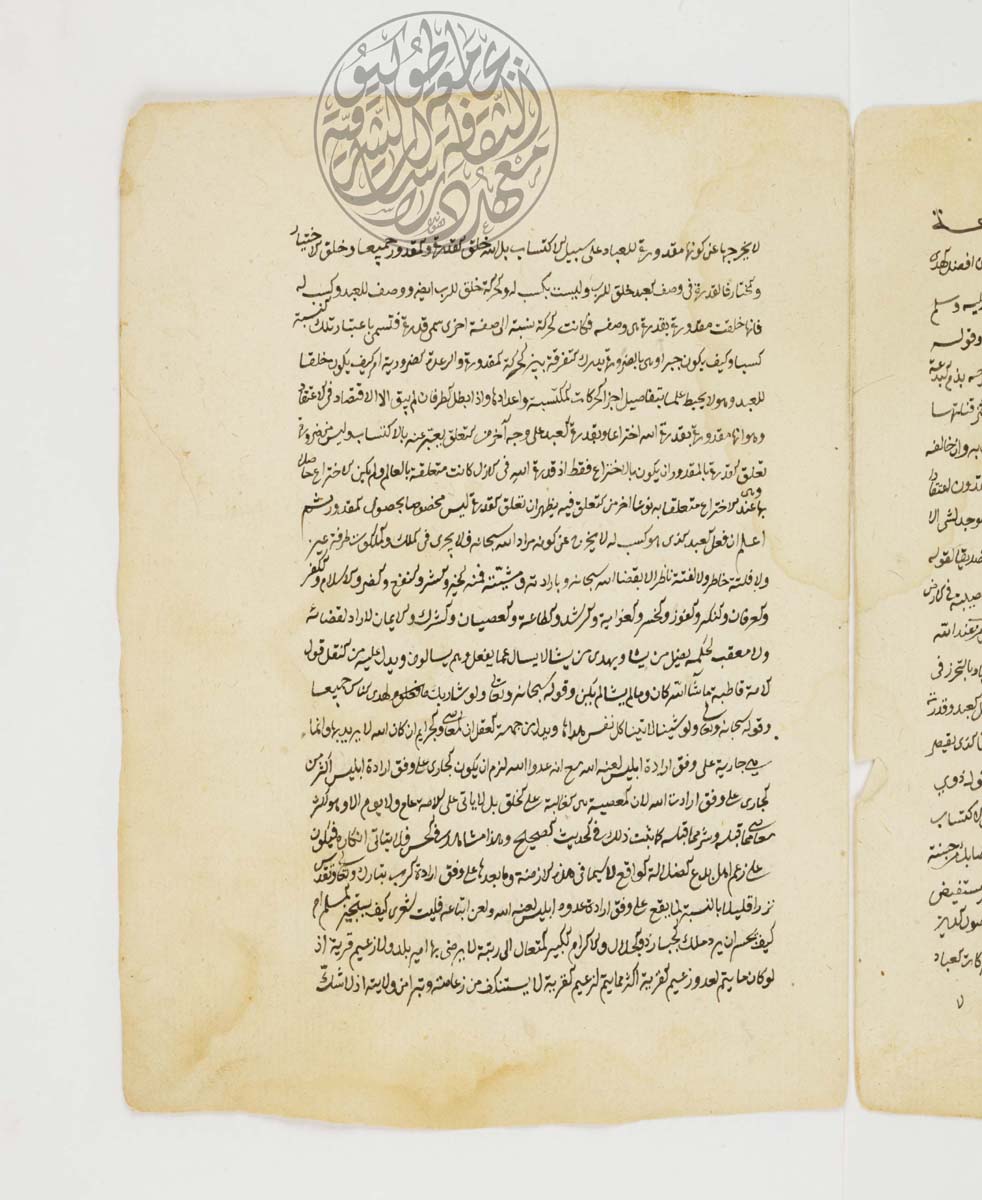 لا يخرجها عن كونها مقدورة للعباد على سبيل الاكتساب بل الله خلق القدرة والمقدور جميعا وخلق الاختيار
والمختار فالقدرة في وصف لعبد خلق للرب وليست بكسب له والحركة خلق للرب ايضا ووصف للعبد وكسب له
فانها خلقت مقدورة بقدرة هي وصفه فكانت الحركة نسبة الى صفة اخرى سمى قدرة فتسمى باعتبار تلك النسبة
كسبا وكيف يكون جبرا وهي بالضرورة يدرك التفرقة بين الحركة المقدورة والرعدة الضرورية ام كيف يكون خلقا
للعبد وهو لا يحيط علما بتفاصيل اجزا الحركات المكتسبة واعدادها واذا بطل الطرفان لم يبق الا الاقتصاد في الاعتقاد
وهو انها مقدورة بقدرة الله اختراعا وبقدرة العبد على وجه آخر من التعلق يعبر عنه بالاكتساب وليس من ضرورة
تعلق القدرة بالمقدور ان يكون بالاختراع فقط اذ قدرة الله في الازل كانت متعلقة بالعالم ولم يكن الاختراع حاصلا
بها وهي عند الاختراع متعلقة به نوعا آخر من التعلق فيه يظهر ان تعلق القدرة ليس مخصوصا بحصول المقدور ثم
اعلم ان فعل العبد الذي هو كسب له لا يخرج عن كونه مراد الله سبحانه فلا يجري في الملك والملكوت طرفة عين
ولا فلتة خاطر ولا لفتة ناظر الا بقضا الله سبحانه وبارادته ومشيئته فمنه الخير والشر والنفع والضر والاسلام والكفر
والعرفان والنكر والفوز والخسر والغواية والرشد والطاعة والعصيان والشرك والايمان لا راد لقضائه
ولا معقب لحكمه يضل من يشا ويهدي من يشا لا يسال عما يفعل وهم يسالون ويدل عليه من النقل قول
الامة قاطبة ما شا الله كان وما لم يشا لم يكن وقوله سبحانه وتعالى ولو شا ربك لهدى الناس جميعا
وقوله سبحانه وتعالى ولو شينا لاتينا كل نفس هداها ويدل من جهة العقل ان المعاصي والجرايم ان كان الله لا يريدها وانما
هي جارية على وفق ارادة ابليس لعنه الله مع انه عدو الله لزم ان يكون الجاري على وفق ارادة ابليس اكثر من
الجاري على وفق ارادت الله لان المعصية هي الغالبة على الخلق بل لا ياتي على الامة عام ولا يوم الا وهو اكثر
معاصي مما قبله وشر مما قبله كما ثبت ذلك في الحديث الصحيح وهذا مشاهد في الحس فلا يتاتى انكاره فيكون
على زعم اهل البدع الضلالة الواقع لا سيما في هذه الازمنة وما بعدها على وفق ارادة الرب تبارك وتعالى وتقدس
نزرا قليلا بالنسبة لما يقع على وفق ارادة عدوه ابليس لعنه الله ولعن اتباعه فليت شعري كيف يستجيز المسلم ام
كيف يحسن ان يرد ملك الجبار ذو الجلال والاكرام الكبير المتعال الى رتبة لا يرضى بها امير بلد ولا زعيم قرية اذ
لو كان ما يتم لعدو زعيم القرية اكثر مما يتم لزعيم القرية لا يستنكف من زعامته وتبرا من ولايته اذ لا شك